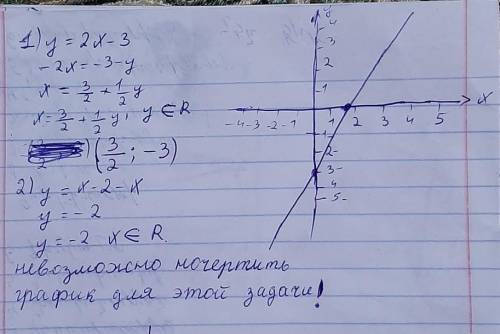 1) y = 2x - 3
-2x = -3 - y
x = 3/2 + 1/2 y
x = 3/2 + 1/2 y, y ∈ R
(3/2 ; -3)
2) y = x - 2 - x
y = -2
y = -2 x ∈ R.
невозможно ночертить
график для этой задачи!
y
4
3
2
1
-4 -3 -2 -1 1 2 3 4 5 x
1
2-
3-
4
5-